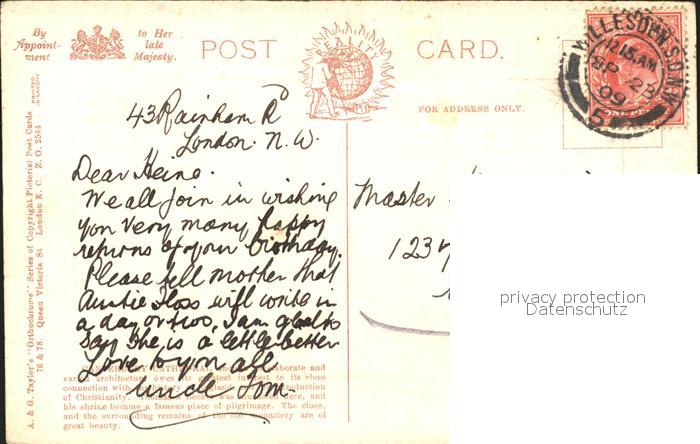 By Appoint-ment
to Her late Majesty.
POST CARD.
REALITY
FOR ADDRESS ONLY.
WILLESDEN S.O. N.W.
12.15 AM
SP 23
09
5
43 Rainham Rd
London. N.W.
Dear Heino.
We all join in wishing
you very many happy
returns of your birthday.
Please tell mother that
Auntie Floss will write in
a day or two, I am glad to
say she is a little better
Love to you all
Uncle Tom.
Master
123
privacy protection
Datenschutz
CATHEDRAL, elaborate and
varied architecture owes its greatest interest to its close
connection with the history of England introduction
of Christianity. Thomas Becket was murdered here, and
his shrine became a famous place of pilgrimage. The close,
and the surrounding remains of the old monastery are of
great beauty.
A. & G. Taylor's "Orthochrome" Series of Copyright Pictorial Post Cards
70 & 78. Queen Victoria St London E. C. Z. O. 2544
PRINTED IN SAXONY